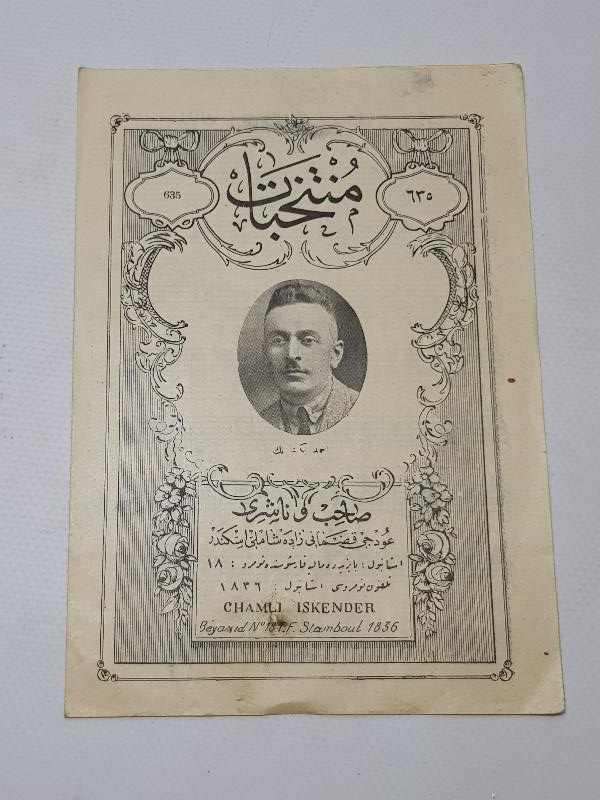 منتخبات
635
٦٣٥
احمد بك
صاحب و ناشرى
عودجى قضمانى زاده شاملى اسكندر
استانبول : بايزيدده ماليه قارشوسنده نومرو : ١٨
تلفون نومروسى استانبول : ١٨٣٦
CHAMLI ISKENDER
Beyazid No 18 T.F. Stamboul 1836